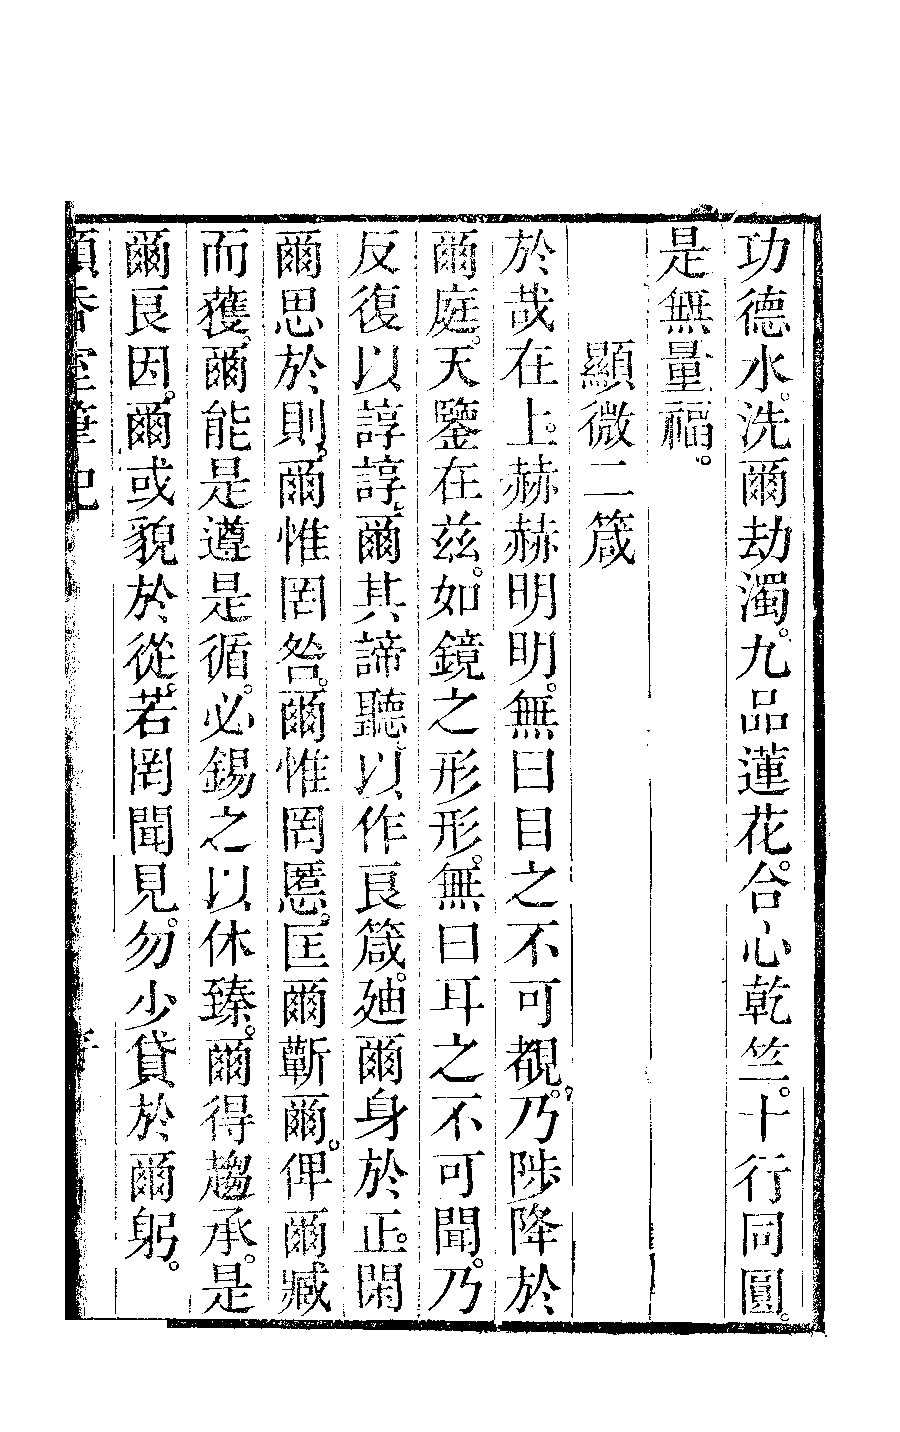 功德水。洗爾劫濁。九品蓮花。合心乾竺。十行同圓。
是無量福。
顯微二箴
於哉在上。赫赫明明。無曰目之不可覩。乃陟降於
爾庭。天鑒在茲。如鏡之形形。無曰耳之不可聞。乃
反復以諄諄。爾其諦聽。以作良箴。迪爾身於正。閑
爾思於則。爾惟罔咎。爾惟罔慝。匡爾蘄爾。俾爾臧
而獲。爾能是遵是循。必錫之以休臻。爾得趨承。是
爾良因。爾或貌於從。若罔聞見。勿少貸於爾躬。
室筆記